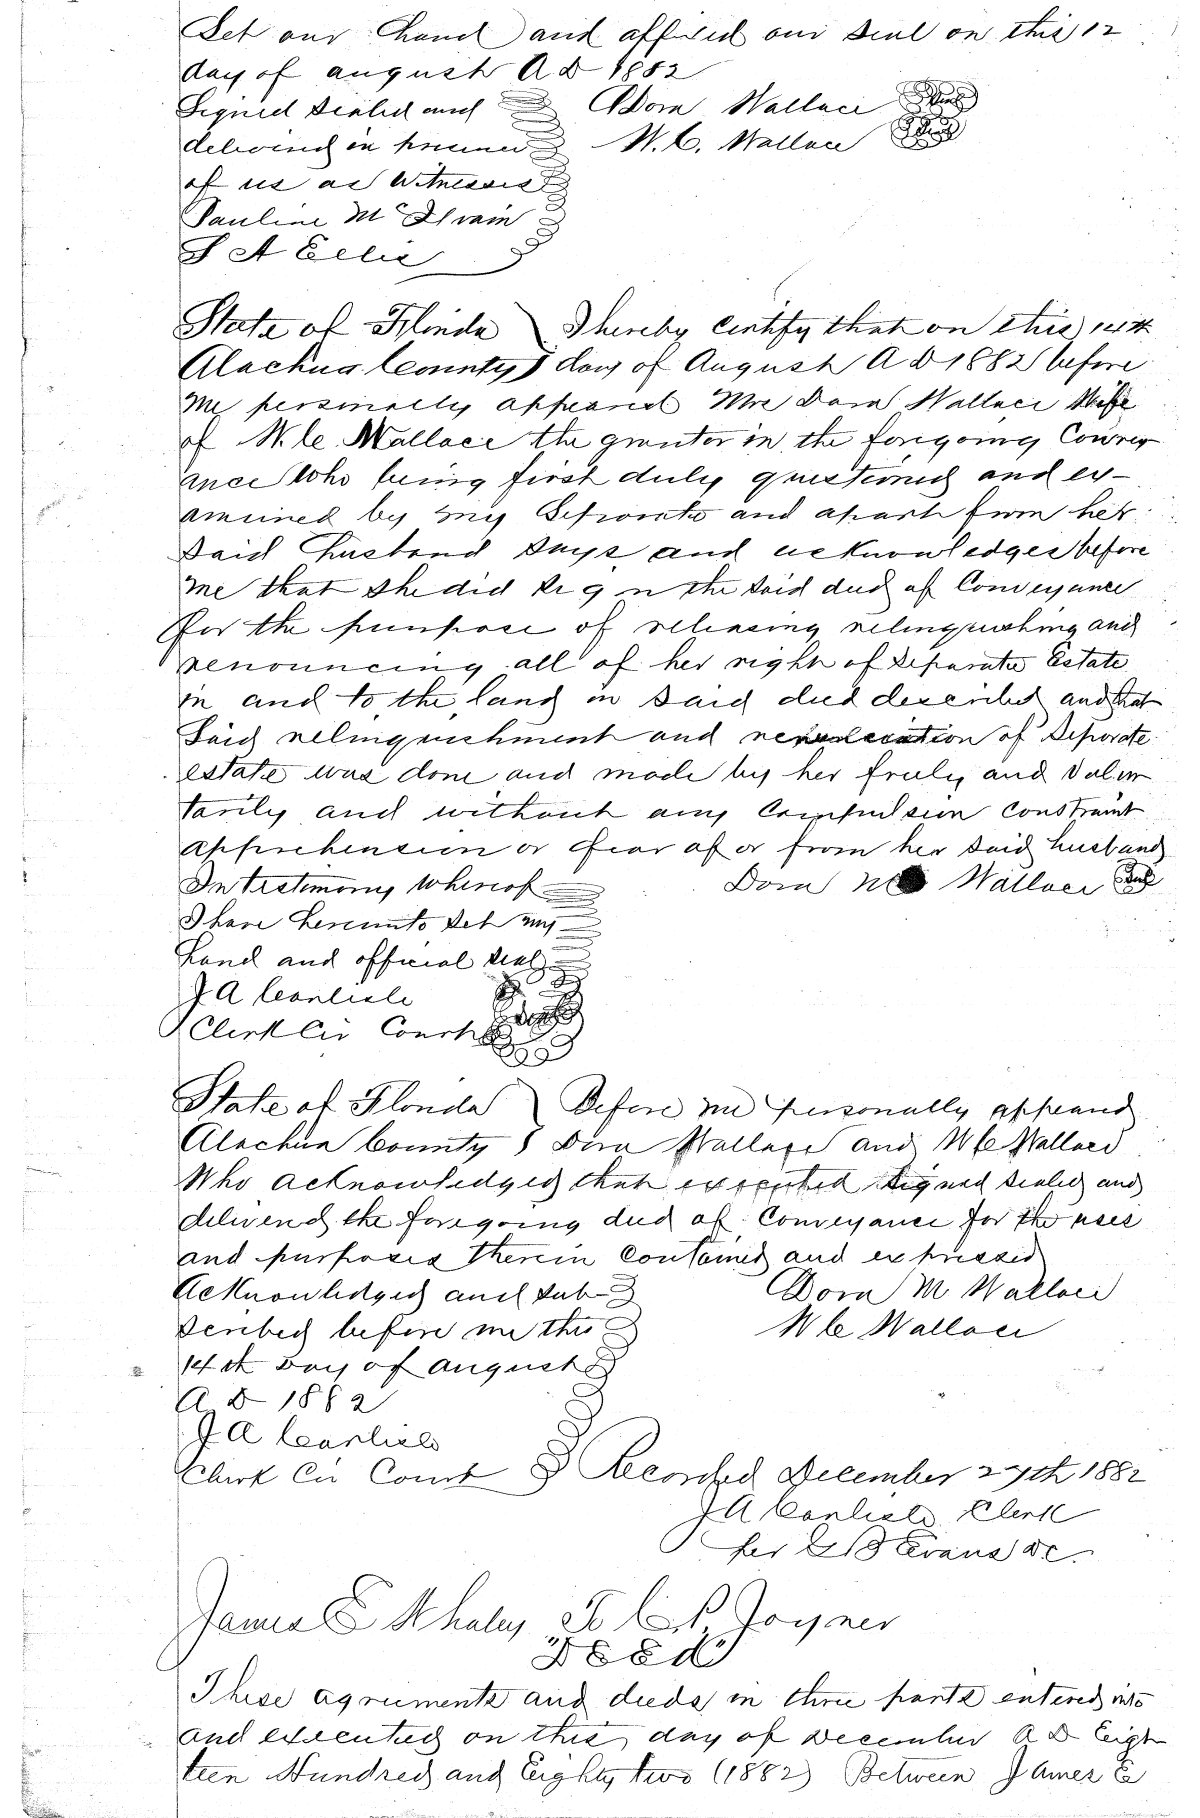 Set our hand and affixed our seal on this 12
day of august A D 1882
Signed sealed and Dora Wallace Seal
delivered in presence W. C. Wallace Seal
of us as witnesses
Pauline McIlvain
J A Ellis
State of Florida I hereby certify that on this 14th
Alachua County day of August A D 1882 before
me personally appeared Mrs Dora Wallace Wife
of W. C Wallace the grantor in the foregoing Convey
ance Who being first duly questioned and ex-
amined by me Separate and apart from her
said husband says and acknowledges before
me that she did sign the said deed of Conveyance
for the purpose of releasing relinquishing and
renouncing all of her right of separate Estate
in and to the land in said deed described and that
said relinquishment and renunciation of Seporate
estate was done and made by her freely and Volun
tarily and without any Compulsion Constraint
apprehension or fear of or from her said husband
In testimony whereof Dora M Wallace Seal
I have hereunto set my
hand and official seal
J A Carlisle
Clerk Cir Court Seal
State of Florida Before me personally appeared
Alachua County Dora Wallace and W C Wallace
Who acknowledged that executed signed sealed and
delivered the foregoing deed of Conveyance for the uses
and purposes therein contained and expressed
Acknowledged and sub- Dora M Wallace
scribed before me this W C Wallace
14th Day of august
A D 1882
J A Carlisle
Clerk Cir Court Recorded December 27th 1882
J A Carlisle Clerk
per Evans DC.
James E Whaley To C. P. Joyner
"Deed"
These agreements and deeds in three parts entered into
and executed on this day of December A D Eigh
teen Hundred and Eighty two (1882) Between James E